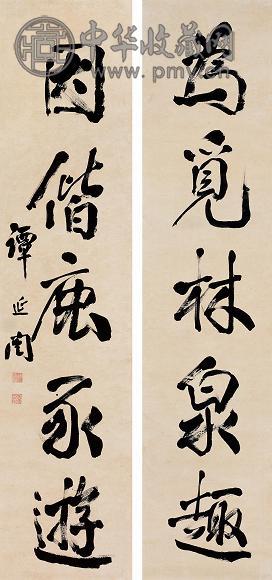 中华收藏网
www.pmv.cn
為覓林泉趣
因偕鹿豕遊
譚延闓